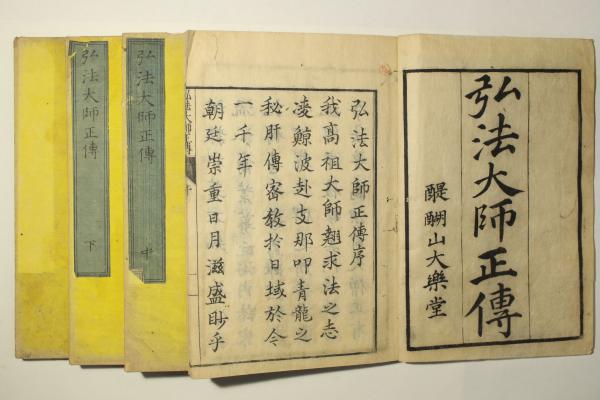 弘法大師正傳
醍醐山大樂堂
弘法大師正傳序
我高祖大師翹求法之志
凌鯨波赴支那叩青龍之
秘肝傳密教扵日域於今
一千年
朝廷崇重日月滋盛眇乎
弘法大師正傳
弘法大師正傳
中
弘法大師正傳
下